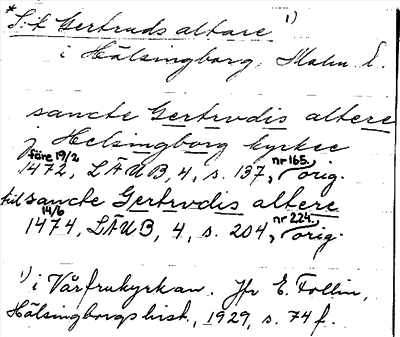 *S:t Gertruds altare 1)
i Hälsingborg, Malm. l.
sancte Gertrvdis altere
j Helsingborg kyrkee
före 19/2 1472, LÄUB, 4, s. 137, nr 165. orig.
till sancte Gertrvdis altere
14/6 1474, LÄUB, 4, s. 204, nr 224. orig.
1) i Vårfrukyrkan. Jfr E. Follin,
Hälsingborgs hist., 1929, s. 74 f.